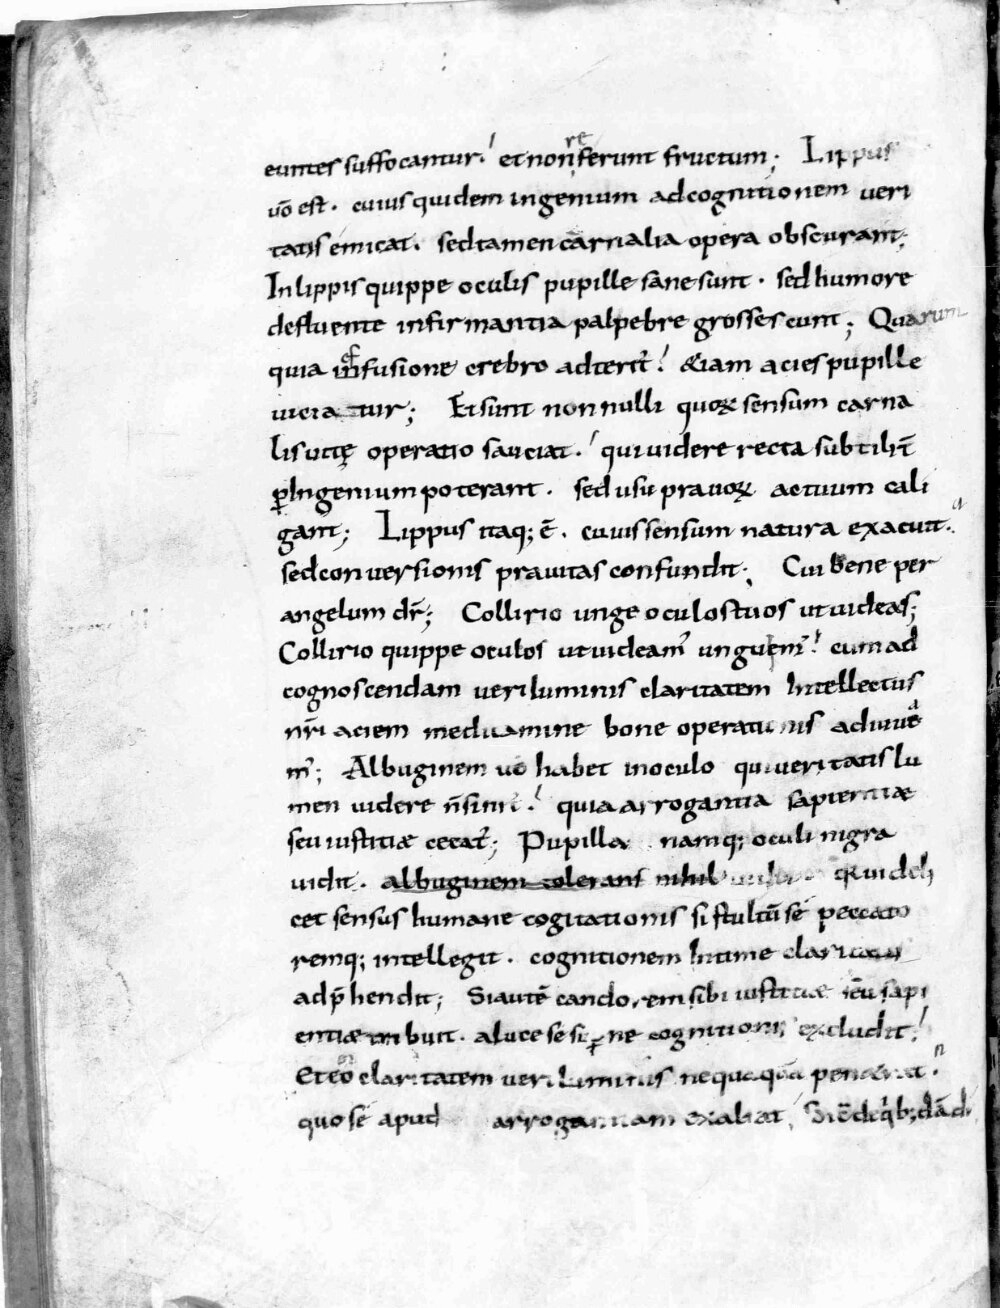 euntes suffocantur. et non referunt fructum; Lippus
uo est. cuius quidem ingenium ad cognitionem veri
tatis emicat. sed tamen carnalia opera obscurant;
In lippis quippe oculis pupille sane sunt. sed humore
defluente infirmantia palpebre grossescunt; Quarum
quia infusione crebro adterit̄. &iam acies pupille
uicia tur; Et sunt non nulli quoꝝ sensum carna
lis uitę operatio sauciat. qui videre recta subtilit̄
ꝑ Ingenium poterant. sed usu prauoꝝ actuum cali
gant; Lippus itaq; ē. cuius sensum natura exacuit.
sed conversionis prauitas confundit; Cui bene per
angelum dr̄; Collirio unge oculos tuos ut uideas;
Collirio quippe oculos ut uideam̄ unguem̄. cum ad
cognoscendam veri luminis claritatem Intellectus
nr̄i aciem medicamine bone operationis adiuua
m̄; Albuginem uo habet in oculo qui veritatis lu
men videre n̄ sinit̄. quia arrogantia sapientiae
seu iustitiae cecat̄; Pupilla namq; oculi nigra
uidit. albuginem tolerans nihil Qui deli
cet sensus humane cogitationis si stultū se peccato
remq; intellegit. cognitionem Intime claritatis
adp̄hendit; Si autē candorem sibi iustitiae seu sapi
entiae tribuit. a luce se supne cognitionis excludit.
Et eo claritatem veri luminis nequaquā penetrat.
quo se apud arrogantiam exaltat